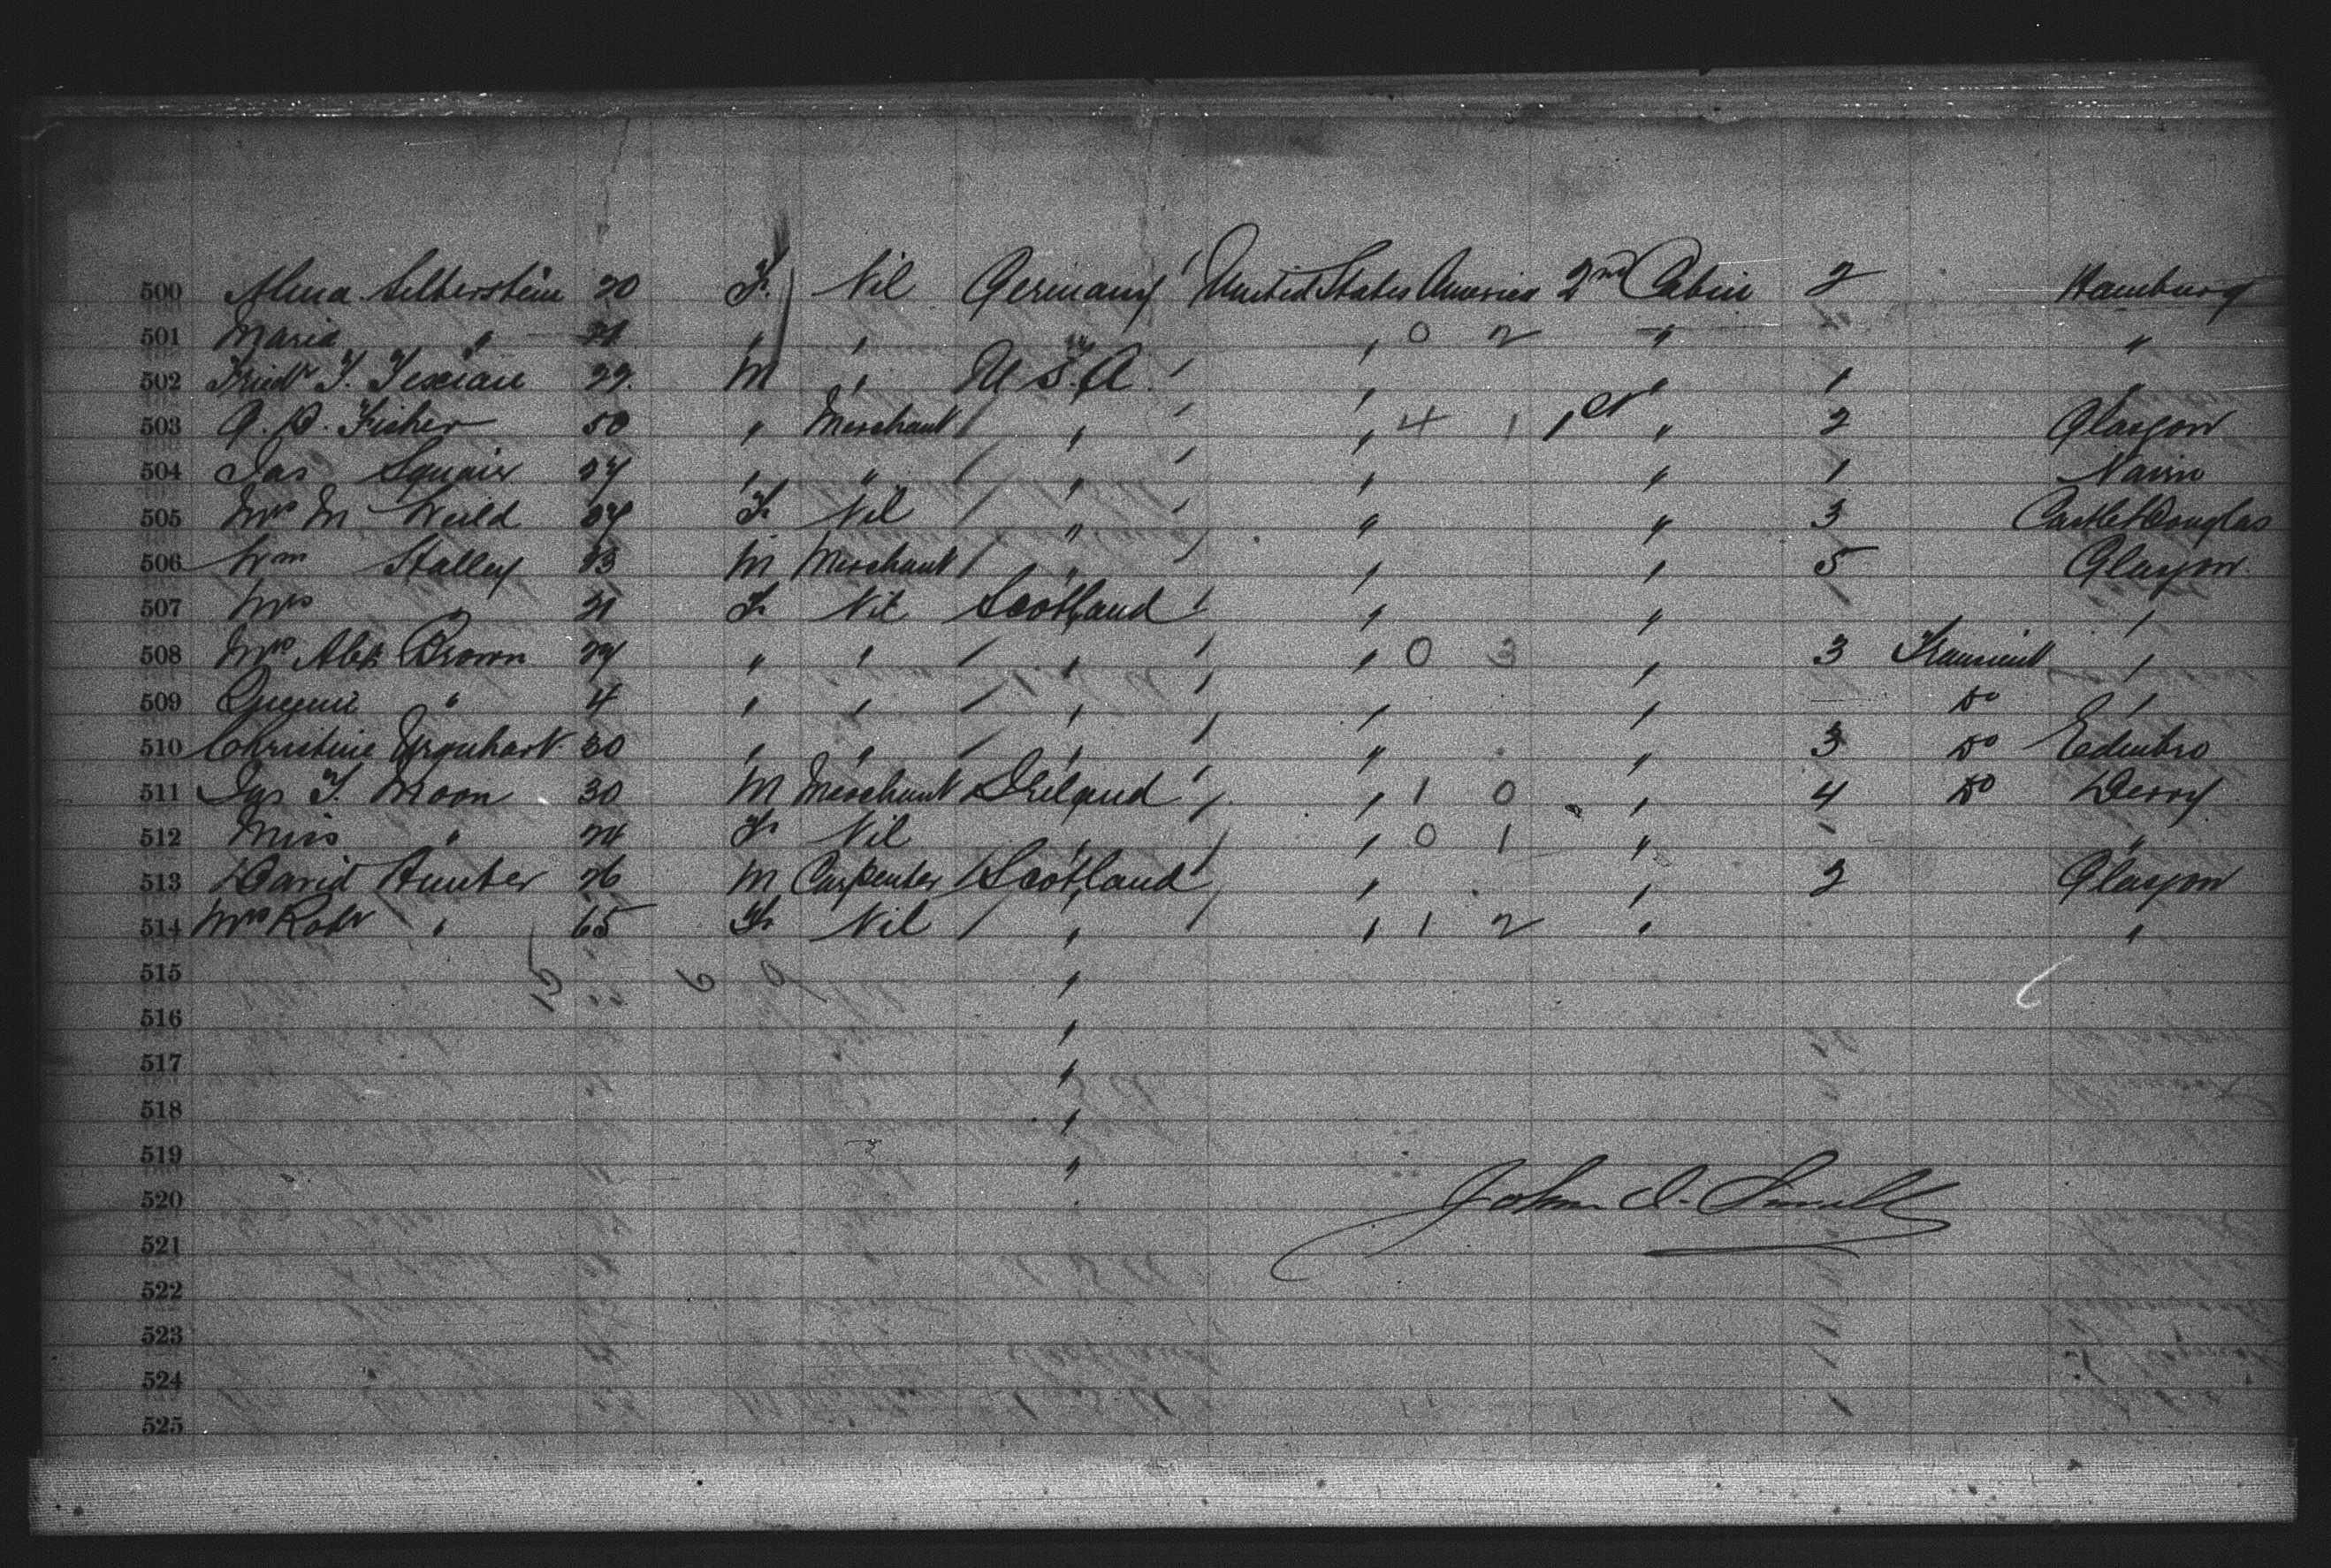 500 Alma Silberstein 20 F. Nil Germany United States America 2nd Cabin 2 Hamburg
501 Maria " 21 " " " 0 2 " "
502 Fried. T. 22 M " U.S.A. " " 1 "
503 Fisher 50 " Merchant " " 4 1 1st " 2 Glasgow
504 Jas Squair " " " " " 1 Nairn
505 Mrs M Weild F Nil " " " 3 Castle Douglas
506 Wm Stalley M Merchant " " " 5 Glasgow
507 Mrs " 21 F Nil Scotland " " "
508 Mrs Alex Brown " " " " 0 3 " 3 Transient "
509 " 4 " " " " " Do "
510 Christine Urquhart 30 " " " " " 3 Do Edinbro
511 Jas T. Moon 30 M Merchant Ireland " 1 0 " 4 Do Derry
512 Miss " 24 F Nil " " 0 1 " "
513 David Hunter 26 M Carpenter Scotland " " 2 Glasgow
514 Mrs Robt " 65 F Nil " " 1 2 " "
515 "
516 "
517 "
518 "
519 "
520
521
522
523
524
525
John